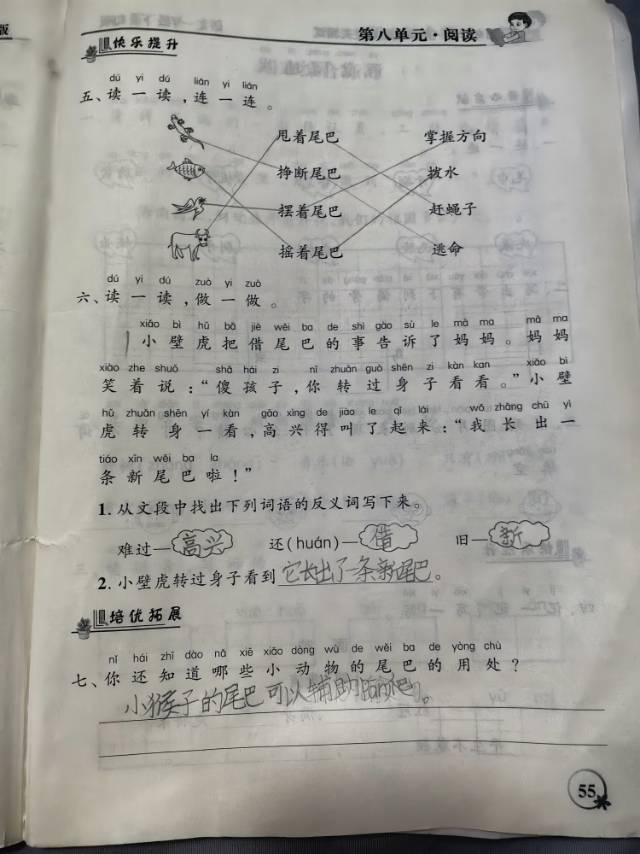 第八单元·阅读
快乐提升
dú yi dú lián yi lián
五、读一读,连一连。
甩着尾巴 掌握方向
挣断尾巴 拨水
摆着尾巴 赶蝇子
摇着尾巴 逃命
dú yi dú zuò yi zuò
六、读一读,做一做。
xiǎo bì hǔ bǎ jiè wěi ba de shì gào sù le mā ma mā ma
小壁虎把借尾巴的事告诉了妈妈。妈妈
xiào zhe shuō shǎ hái zi nǐ zhuǎn guò shēn zi kàn kan xiǎo bì
笑着说:“傻孩子,你转过身子看看。”小壁
hǔ zhuǎn shēn yí kàn gāo xìng de jiào le qǐ lái wǒ zhǎng chū yì
虎转身一看,高兴得叫了起来:“我长出一
tiáo xīn wěi ba la
条新尾巴啦!”
1.从文段中找出下列词语的反义词写下来。
难过—高兴 还(huán)—借 旧—新
2.小壁虎转过身子看到它长出了一条新尾巴。
培优拓展
nǐ hái zhī dào nǎ xiē xiǎo dòng wù de wěi ba de yòng chù
七、你还知道哪些小动物的尾巴的用处?
小猴子的尾巴可以辅助爬。
55